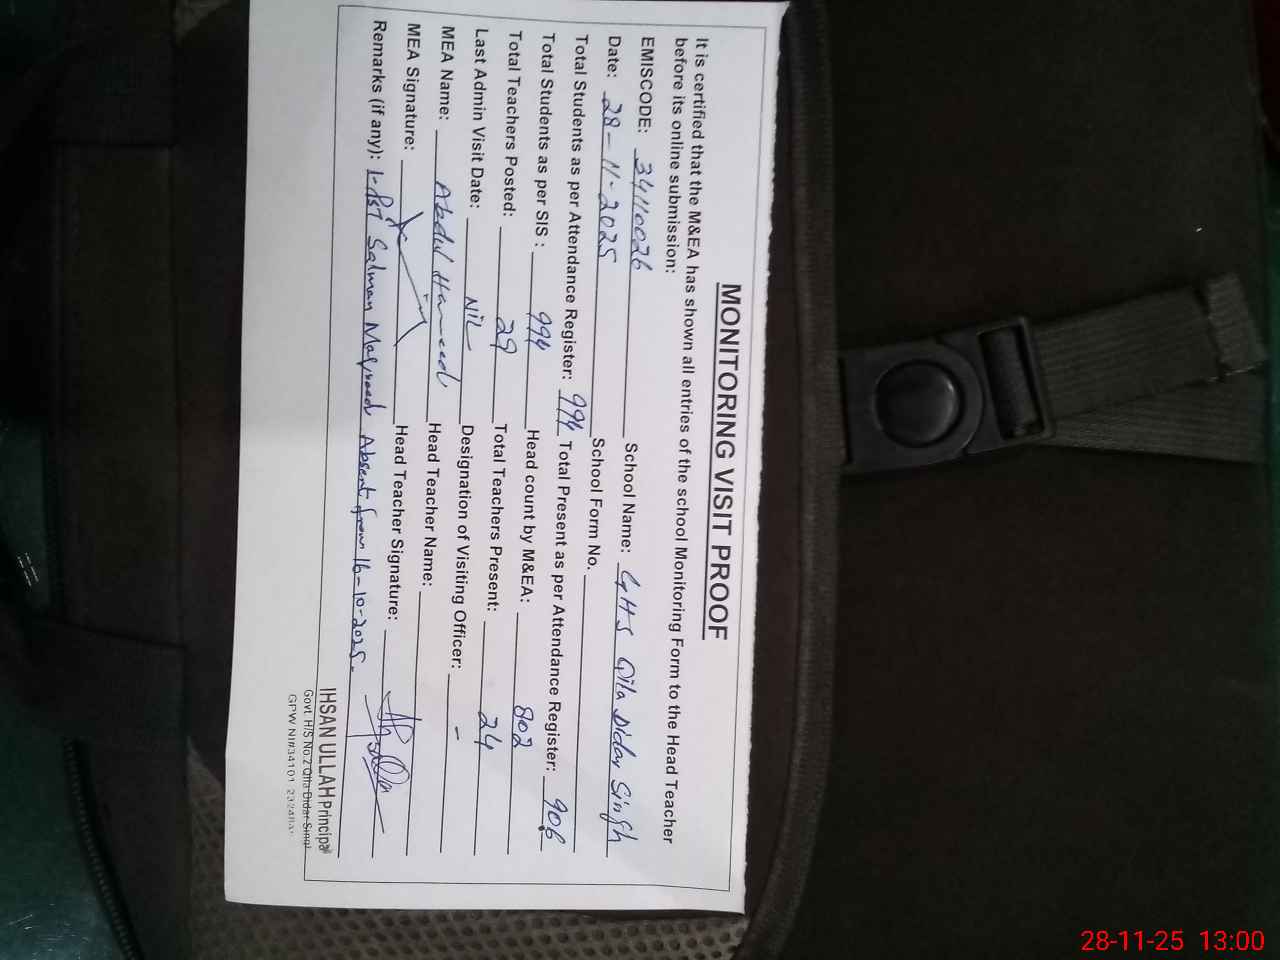 MONITORING VISIT PROOF
It is certified that the M&EA has shown all entries of the school Monitoring Form to the Head Teacher
before its online submission:
EMISCODE: 34110026 School Name: GHS Qila Didar Singh
Date: 28-11-2025 School Form No.
Total Students as per Attendance Register: 994 Total Present as per Attendance Register: 906
Total Students as per SIS : 994 Head count by M&EA: 802
Total Teachers Posted: 29 Total Teachers Present: 24
Last Admin Visit Date: NIL Designation of Visiting Officer: -
MEA Name: Abdul Hameed Head Teacher Name:
MEA Signature: Head Teacher Signature:
Remarks (if any): 1-PST Salman Maqsood Absent from 16-10-2025.
IHSAN ULLAH Principal
Govt. H/S No.2 Qila Didar Singh
28-11-25 13:00